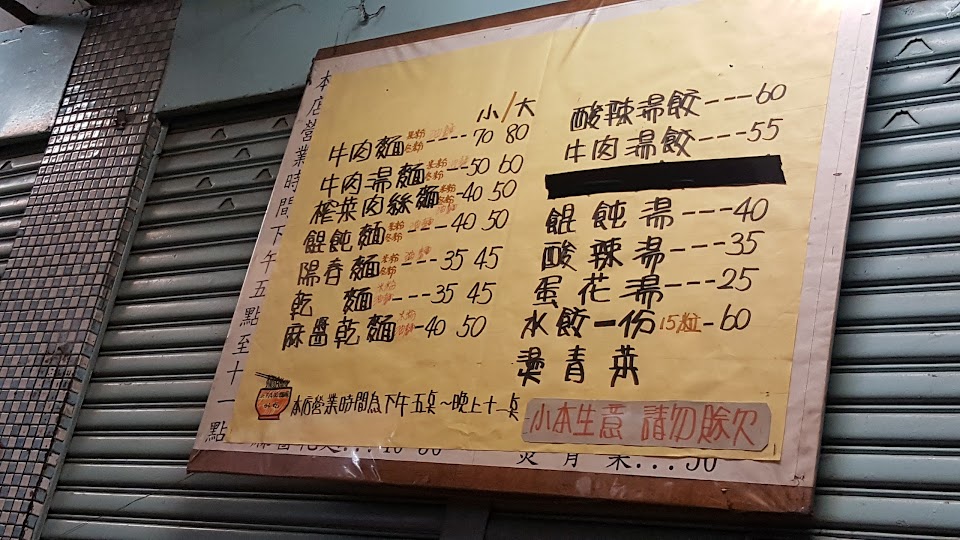 本店營業時間下午五點至十一點
小/大
牛肉麵米粉冬粉油麵----70 80
牛肉湯麵米粉冬粉油麵---50 60
榨菜肉絲麵米粉冬粉油麵-40 50
餛飩麵米粉冬粉油麵----40 50
陽春麵米粉冬粉油麵---35 45
乾麵米粉油麵----35 45
麻醬乾麵米粉油麵-40 50
本店營業時間為下午五桌~晚上十一桌
酸辣湯餃---60
牛肉湯餃---55
餛飩湯---40
酸辣湯---35
蛋花湯---25
水餃一份15粒-60
燙青菜
小本生意 請勿賒欠